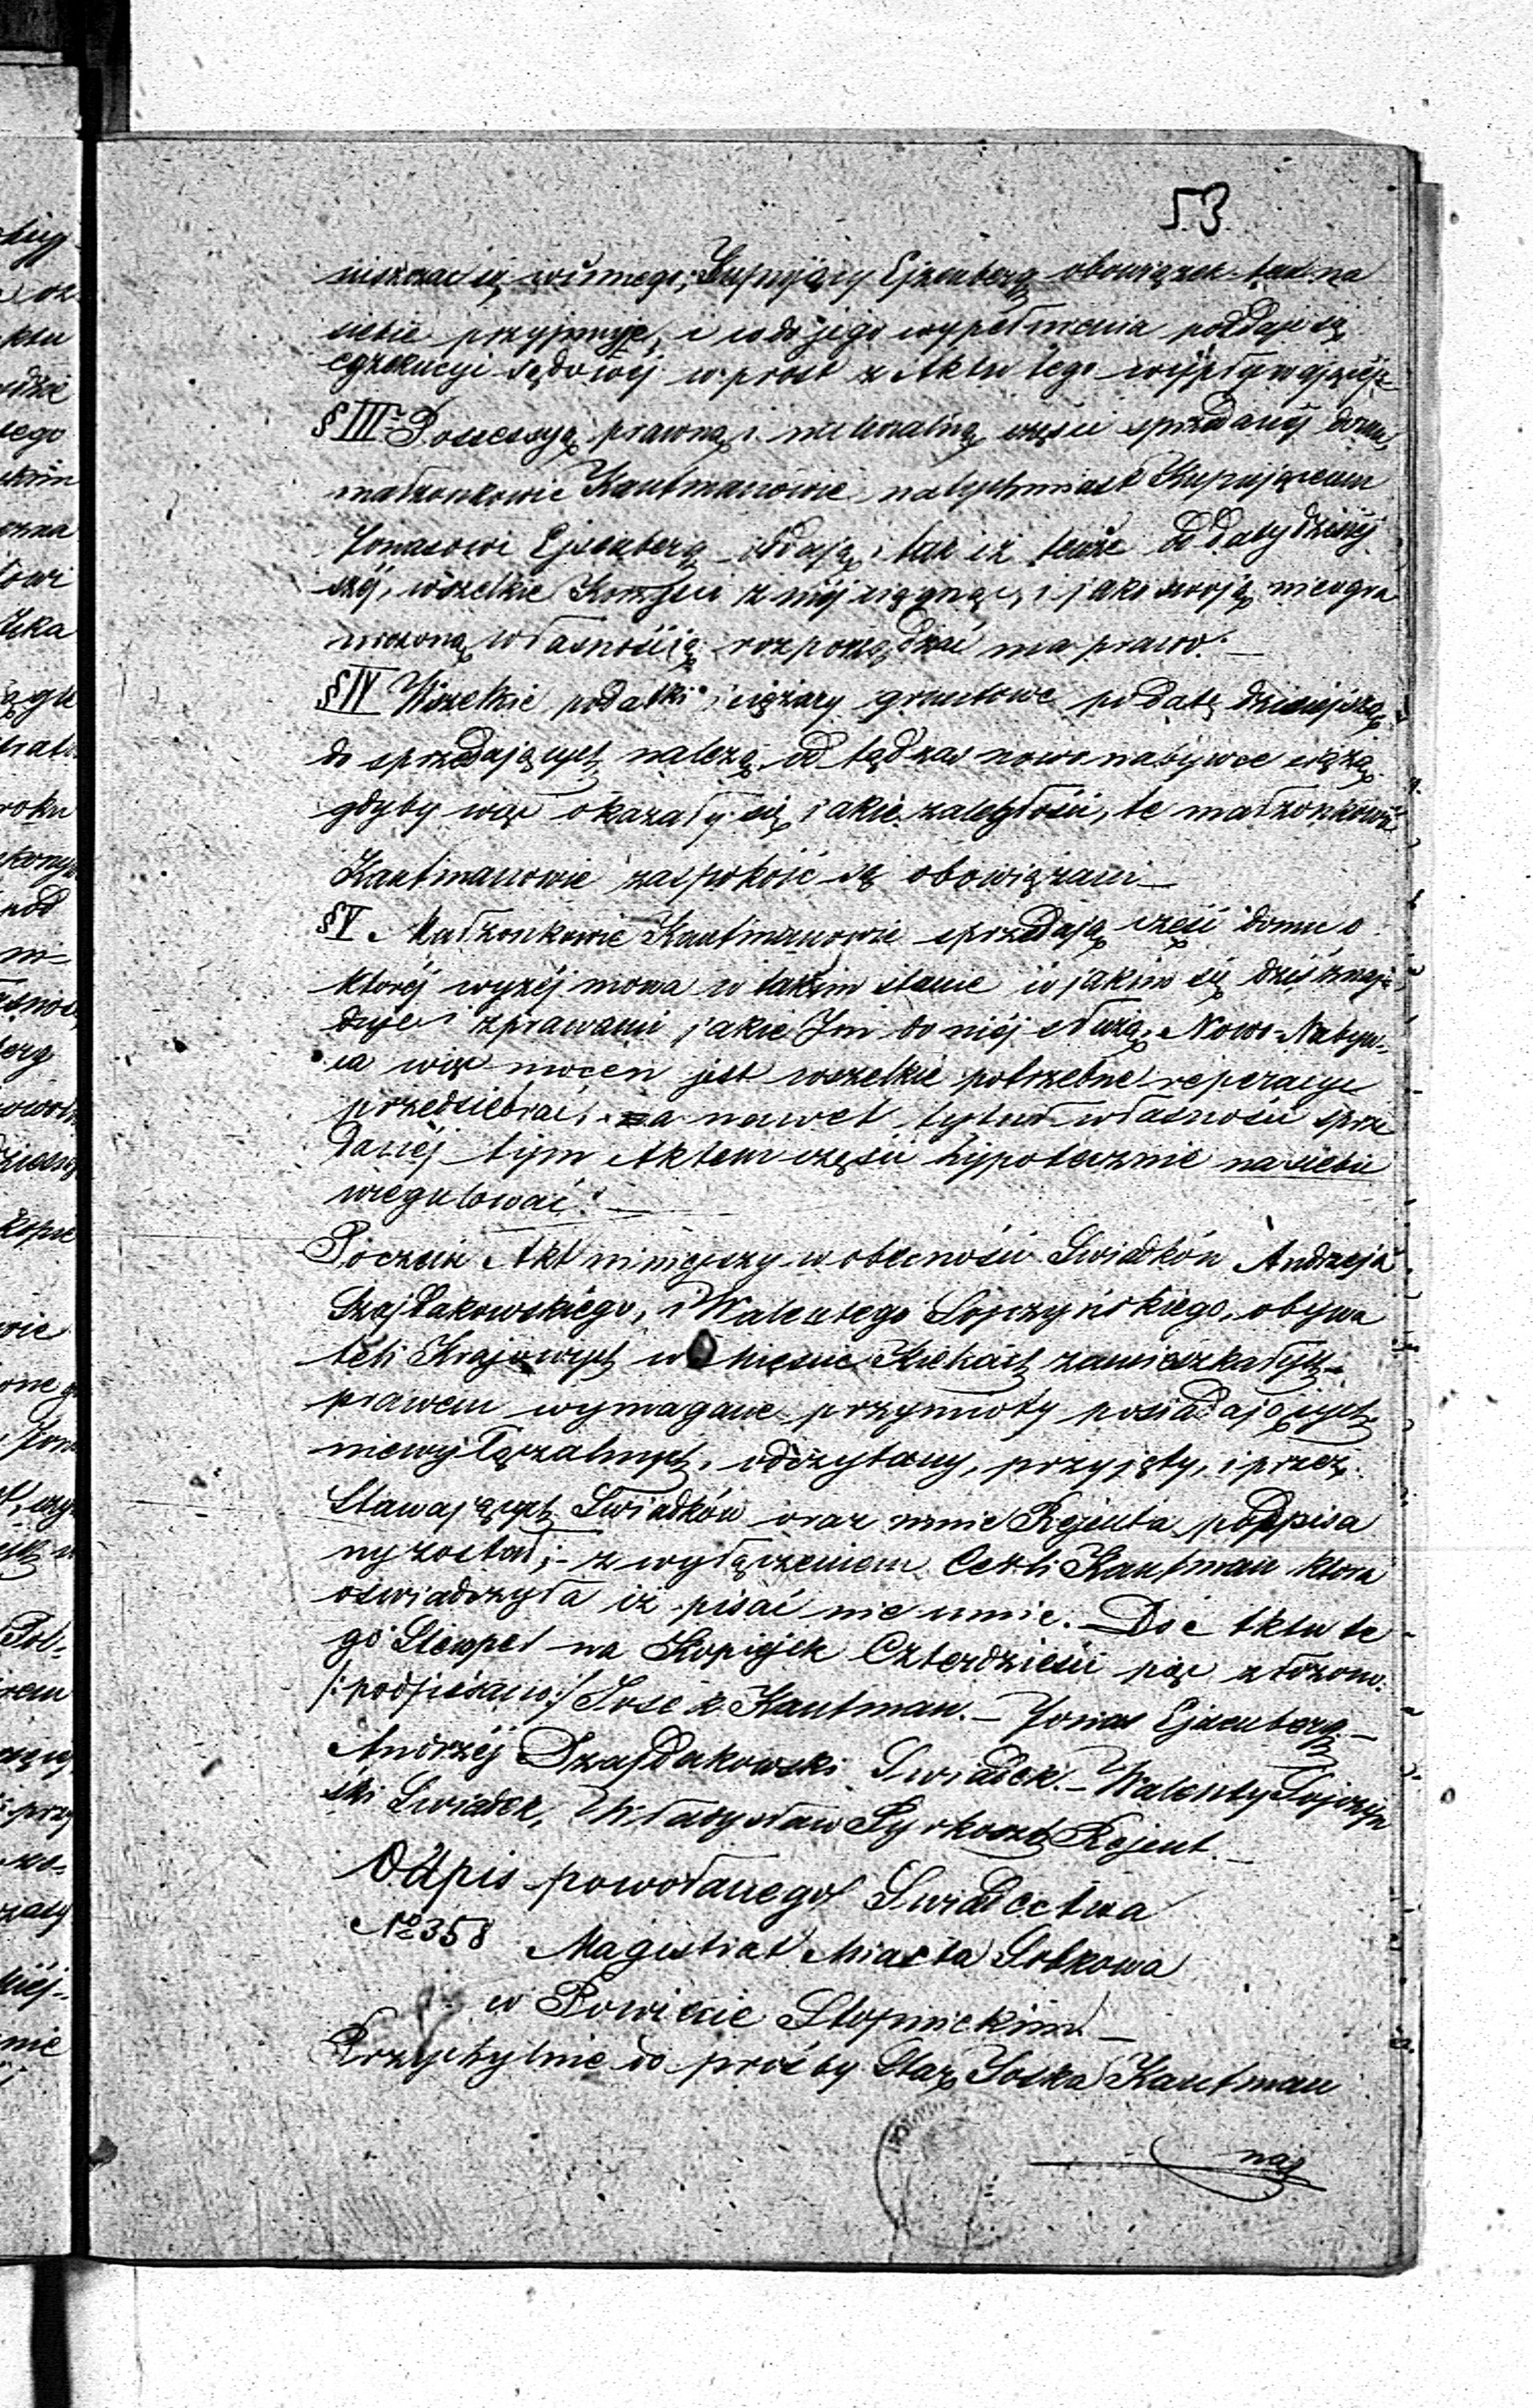 53
niszczać się winnego; Kupujący Ejzenberg obowiązek ten na
siebie przyjmuje, i co do jego wypełnienia poddaje się
egzekucyi sądowéj wprost z Aktu tego wypływającéj
§ III Possessyą prawną i naturalną części sprzedanéj domu
małżonkowie Kaufmanowie natychmiast Kupującemu
Jonasowi Ejzenberg oddają, tak iż tenże od daty dzisiéj
széj, wszelkie Korzyści z niéj ciągnąć, i jako swoją nieogra
niczoną własnością rozporządzać ma prawo. —
§ IV Wszelkie podatki i ciężary gruntowe po datę dzisiejszą
do sprzedających należą, od tąd zaś nowonabywcę ciążą,
gdyby więc okazały się jakie zaległości, te małżonkowie
Kaufmanowie zaspokoić są obowiązani —
§ V. Małżonkowie Kaufmanowie sprzedają część domu o
któréj wyżéj mowa w takim stanie w jakim się dziś znaj
duje i z prawami jakie Im do niéj służą, Nowo-Nabyw-
ca więc mocen jest wszelkie potrzebne reperacye
przedsiebrać, a nawet tytuł własności sprze
danéj tym Aktem części hypotecznie na siebie
uregulować. —
Poczem Akt niniejszy w obecności Świadków Andrzeja
Szajdakowskiego, i Walentego Sojczyńskiego, obywa
teli Krajowych w Mieście Kielcach zamieszkałych
prawem wymagane przymioty posiadających
niewyłączalnych, odczytany, przyjęty, i przez
Stawających Świadków oraz mnie Rejenta podpisa
ny został; - z wyłączeniem Cerli Kaufman która
oświadczyła iż pisać nie umie. — Do Aktu te
go Stempel na Kopiejek Czterdzieści pięć złożono.
/:podpisano:/ Josek Kaufman. — Jonas Ejzenberg —
Andrzéj Szajdakowski Świadek. — Walenty Sojczyń
ski Świadek, Władysław Pyrkosz Rejent. —
Odpis powołanego Świadectwa
№ 358 Magistrat Miasta Sobkowa
w Powiecie Stopnickim —
Przychylnie do prośby Star. Joska Kaufman
naj